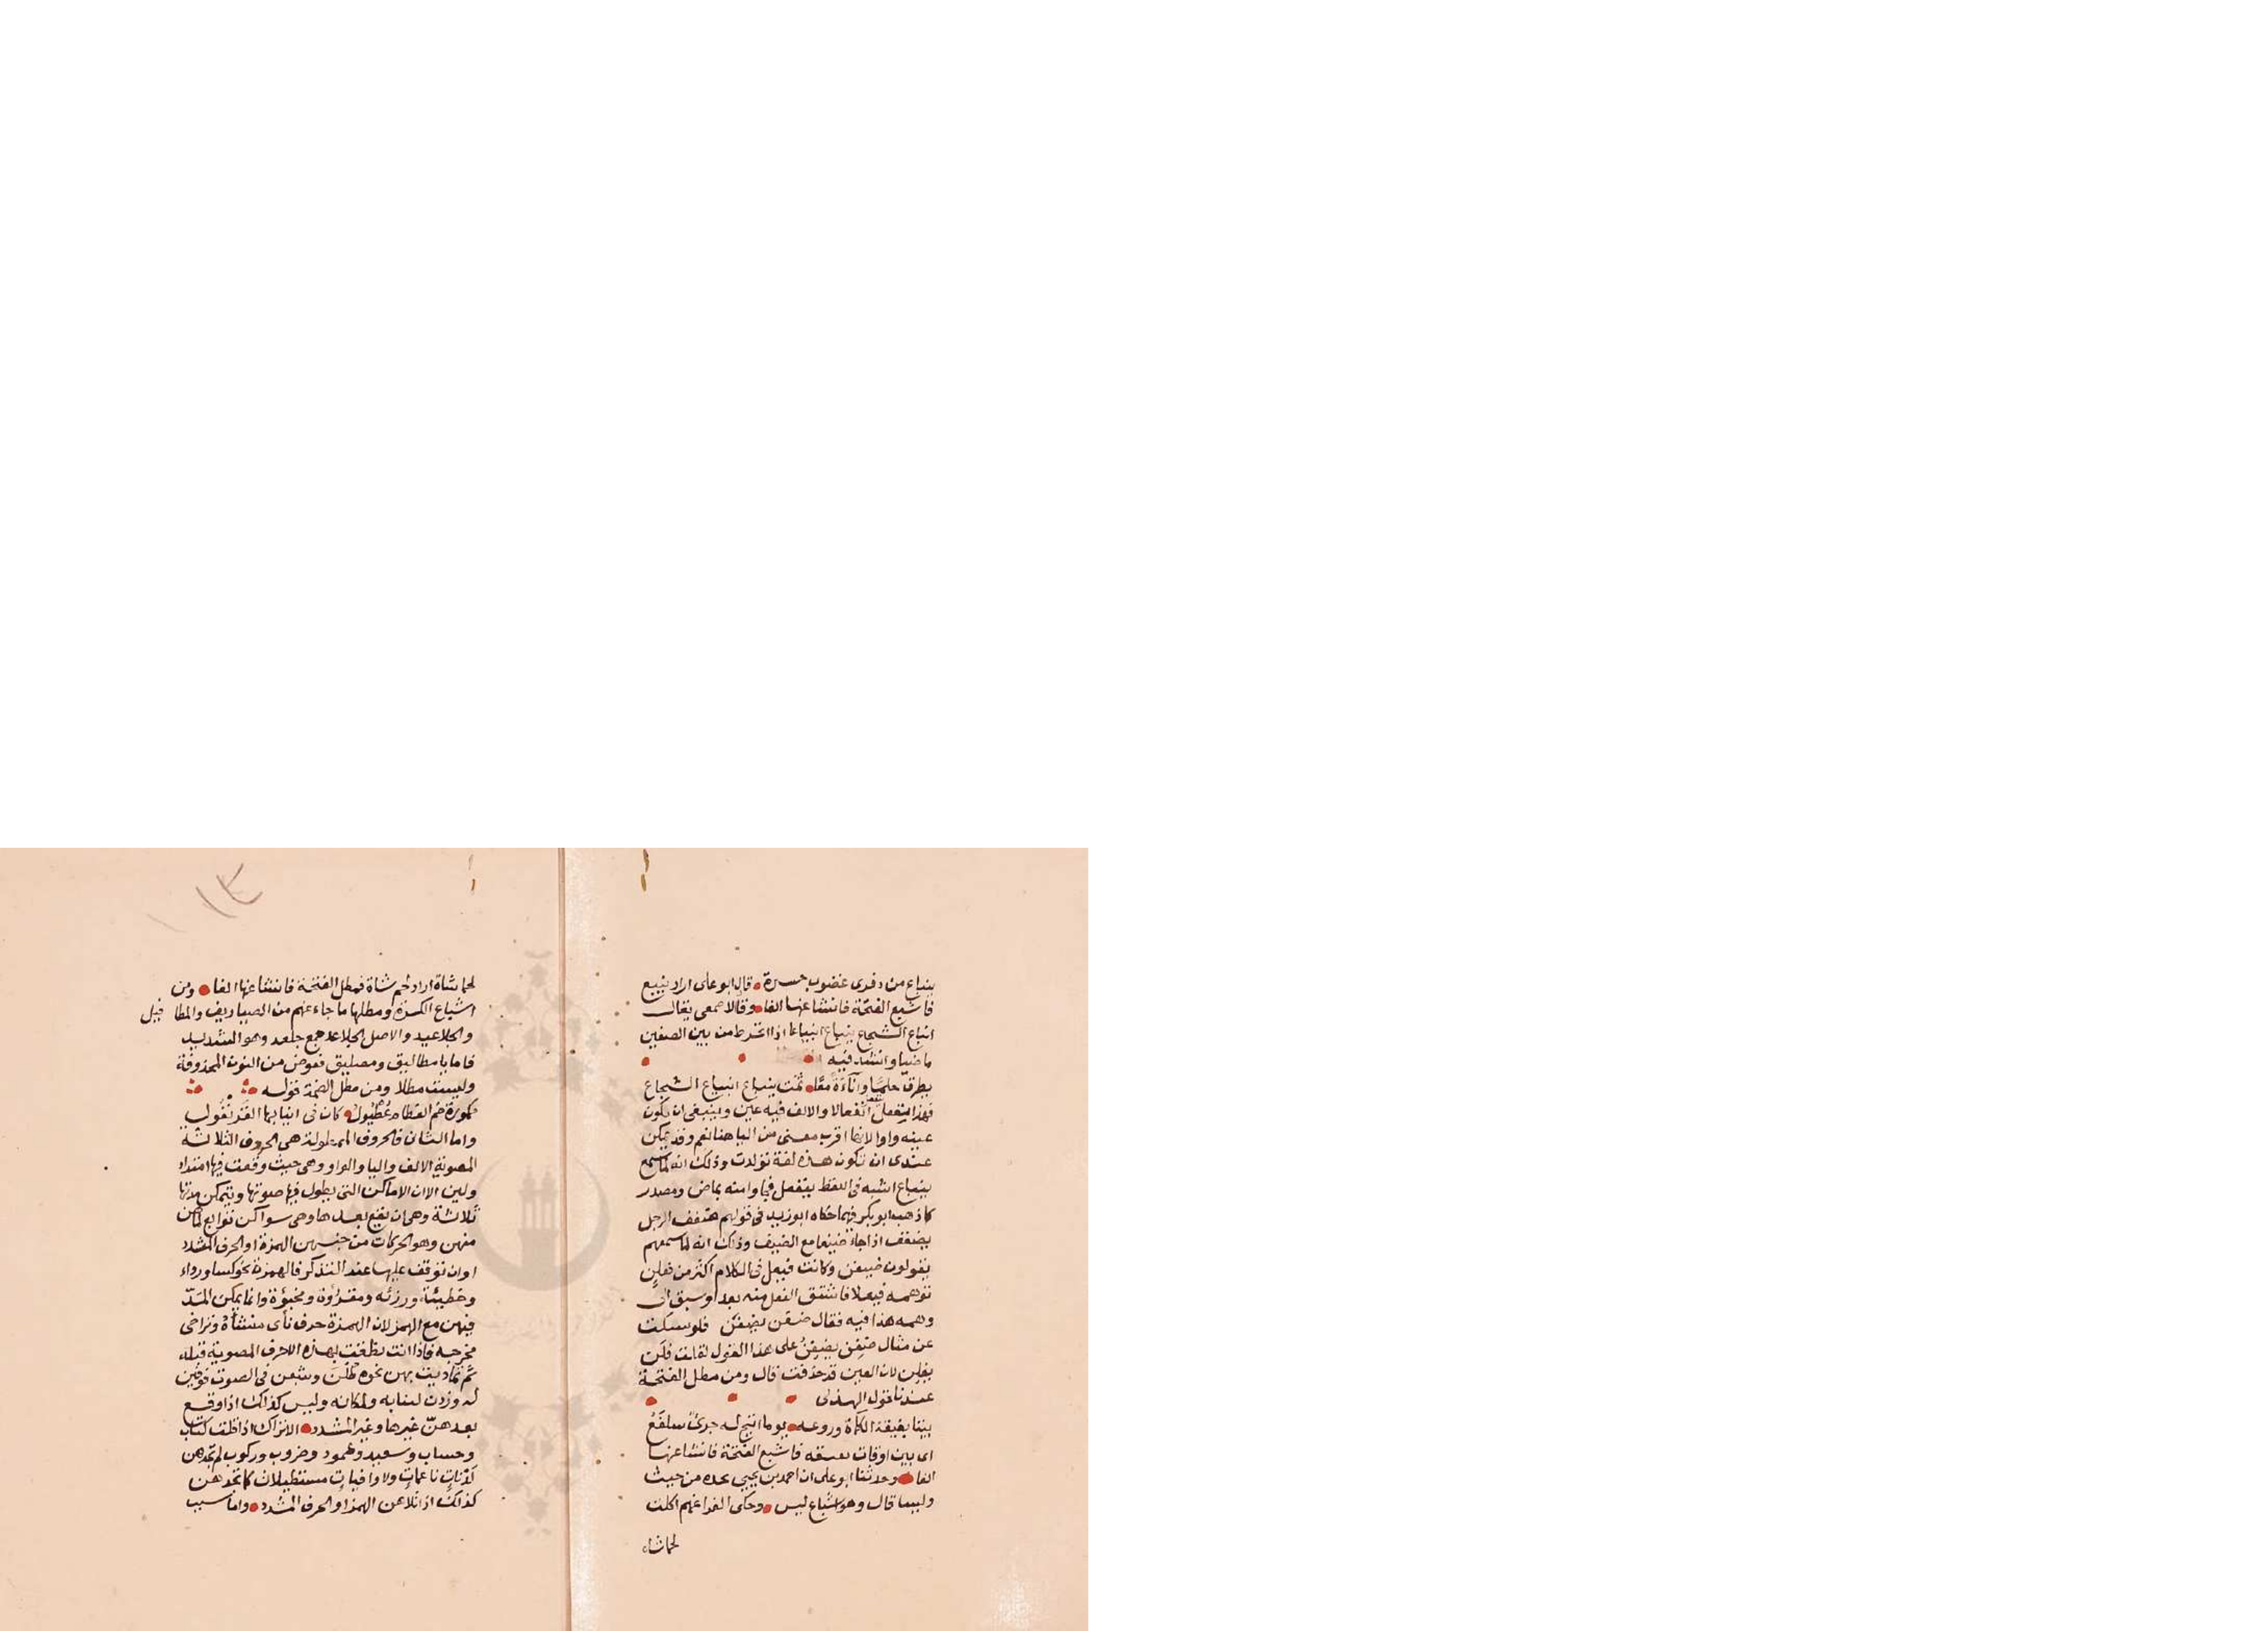 ينباع من ذفرى غضوب جسرة قال ابو على اراد ينبع
فاشبع الفتحة فانشا عنها الفا وقال الاصمعى يقال
انباع الشجاع ينباع انبياعا اذا انخرط من بين الصفين
ماضيا وانشد فيه
يطرق حلما واناءة معا ثمت ينباع انبياع الشجاع
فهذا ينفعل انفعالا والالف فيه عين وينبغى ان يكون
عينه واوا لانها اقرب معنى من اليا هنا نعم وقد يمكن
عندى ان تكون هذه لغة تولدت وذلك انه لما سمع
ينباع اشبه فى اللفظ ينفعل فجاوا منه بماض ومصدر
كما ذهب ابو بكر فيما حكاه ابو زيد فى قولهم ضيفن الرجل
يضفن اذا جاء ضيفا مع الضيف وذلك انه لما سمعهم
يقولون ضيفن وكانت فيعل فى الكلام اكثر من فعلن
توهمه فيعلا فاشتق الفعل منه بعد ان سبق الى
وهمه هذا فيه فقال ضفن يضفن فلو سئلت
عن مثال ضفن يضفن على هذا القول لقلت فلن
يفلن لان العين قد حذفت قال ومن مطل الفتحة
عندنا قول الهذلى
بينا تعنقه الكماة وروغه يوما اتيح له جرئ سلفع
اى بين اوقات تعنقه فاشبع الفتحة فانشا عنها
الفا وحدثنا ابو على ان احمد بن يحيى حكى خذه من حيث
وليسا قال وهو اشباع ليس وحكى الفرا عنهم اكلت
لحما شاه
لحما شاة اراد لحم شاة فمطل الفتحة فانشا عنها الفا ومن
اشباع الكسرة ومطلها ما جاء عنهم من الصياريف والمطافيل
والجلاعيد والاصل الجلاعد جمع جلعد وهو الشديد
فاما يا مطاليق ومطيليق فعوض من النون المحذوفة
وليست مطلا ومن مطل الضمة قوله
ممكورة جم العظام عطبول كان فى انيابها القرنفول
واما الثانى فالحروف الممطولة هى الحروف الثلاثة
المصوتة الالف واليا والواو وهى حيث وقعت فيها امتداد
ولين الا ان الاماكن التى يطول فيها صوتها وتتمكن مدتها
ثلاثة وهى ان تقع بعدها وهى سواكن توابع لما هن
منهن وهو الحركات من جنسهن الهمزة او الحرف المشدد
او ان توقف عليها عند التذكر فالهمزة نحو كساء ورداء
وخطيئة ورزئة ومقروءة ومخبوءة وانما تمكن المد
فيهن مع الهمز لان الهمزة حرف نأى منشأه وتراخى
مخرجه فاذا انت نطقت بهذه الاحرف المصوتة قبله
ثم تماديت بهن نحوه طلن وشعن فى الصوت فوفين
له وزدن لبيانه ولمكانه وليس كذلك اذا وقع
بعدهن غيرها وغير المشدد الا تراك اذا قلت كتاب
وحساب وسعيد وعمود وضروب وركوب لم تجدهن
لدنات ناعمات ولا وافيات مستطيلات كما تجدهن
كذلك اذا تلاهن الهمز او الحرف المشدد واما سبب